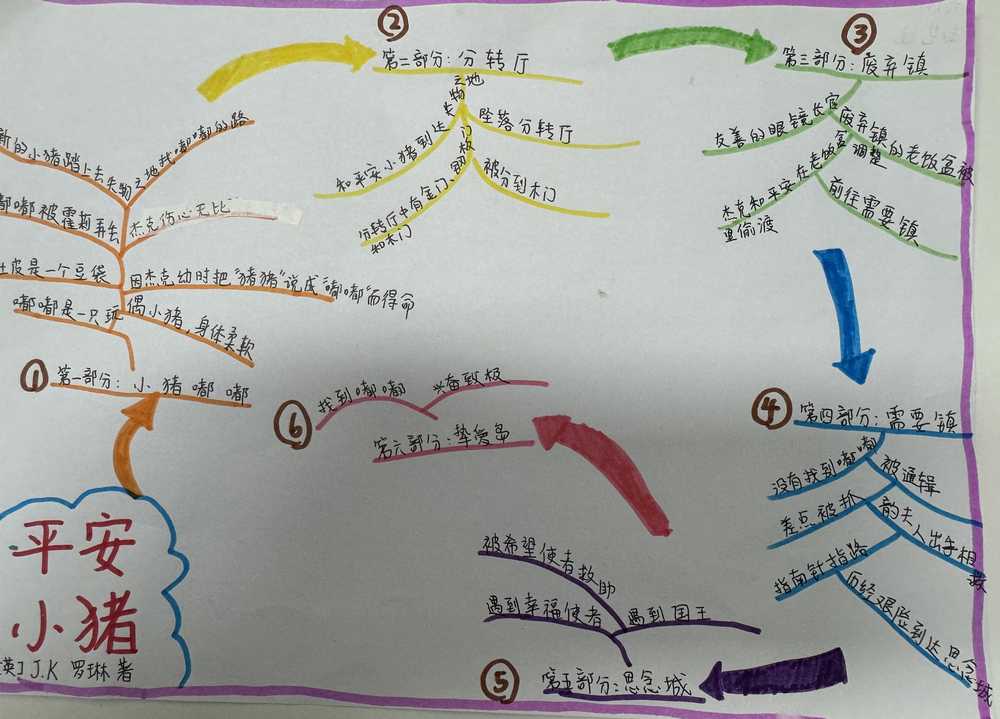 平安
小猪
[英] J.K 罗琳 著
① 第一部分：小猪嘟嘟
嘟嘟是一只玩偶小猪，身体柔软
肚皮是一个豆袋
因杰克幼时把“猪猪”说成“嘟嘟”而得命
嘟嘟被霍莉弄丢
杰克伤心无比
新的小猪踏上去失物之地找嘟嘟的路
② 第二部分：分转厅
和平安小猪到达失物之地
坠落分转厅
分转厅中有金门、钢板门
和木门
被分到木门
③ 第三部分：废弃镇
友善的眼镜长官
废弃镇的老饭盒被调整
杰克和平安在老饭盒
里偷渡
前往需要镇
④ 第四部分：需要镇
没有找到嘟嘟
被通辑
差点被抓
韵夫人出手相救
指南针指路
历经艰险到达思念城
⑤ 第五部分：思念城
遇到幸福使者
遇到国王
被希望使者救助
⑥ 第六部分：挚爱岛
找到嘟嘟
兴奋致极